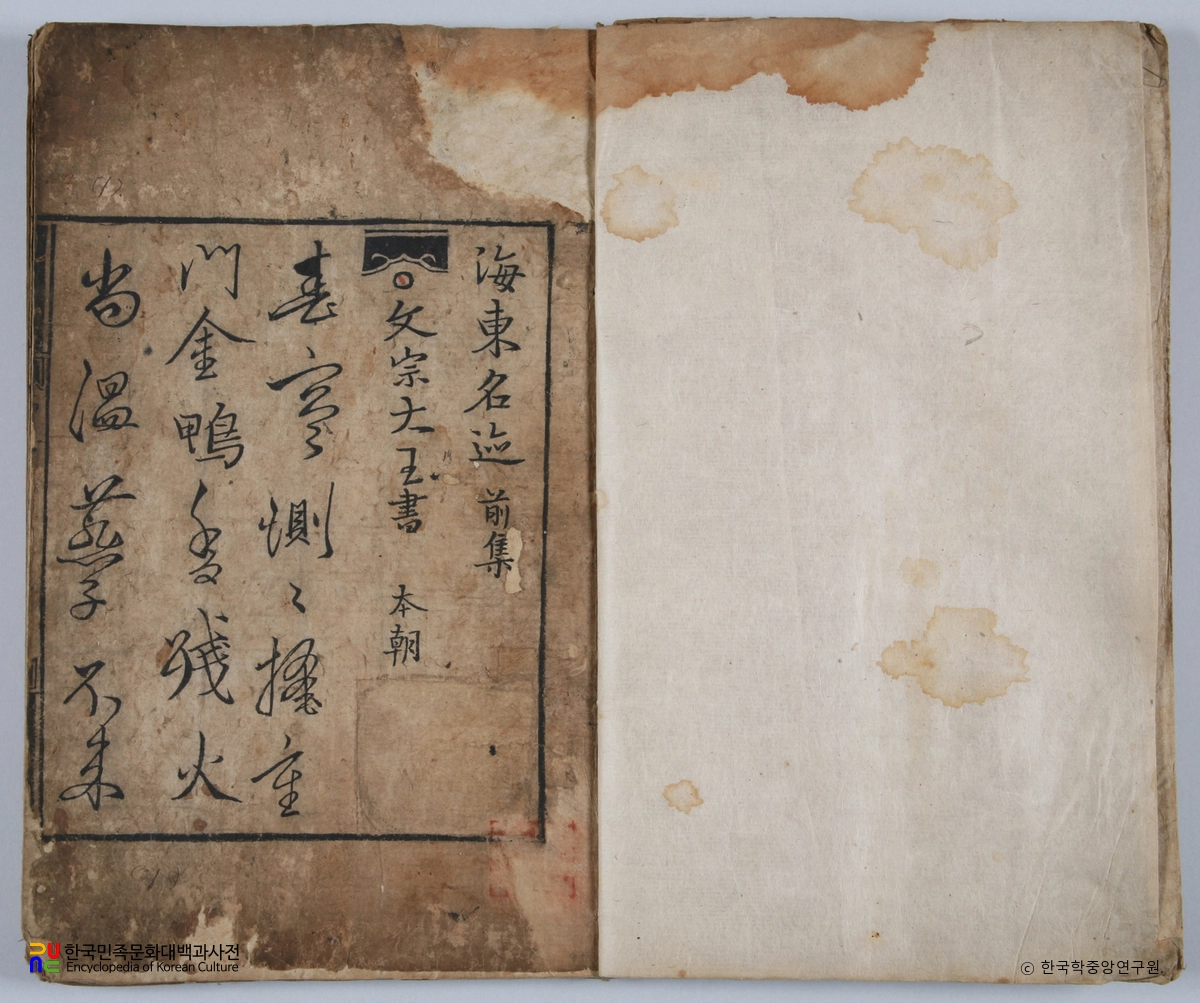 海東名迹 前集
文宗大王書 本朝
春寒惻〻掩重
門金鴨香殘火
尚温燕子不来
한국민족문화대백과사전
Encyclopedia of Korean Culture
ⓒ 한국학중앙연구원